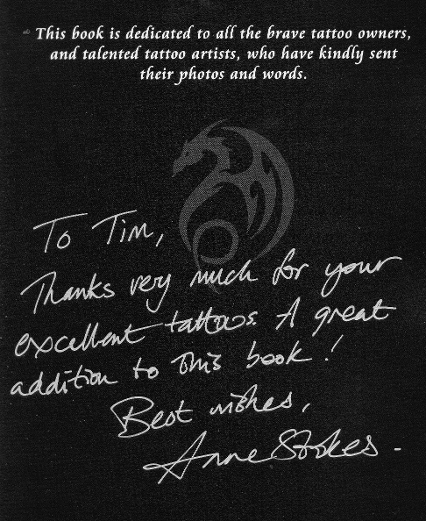 This book is dedicated to all the brave tattoo owners,
and talented tattoo artists, who have kindly sent
their photos and words.
To Tim,
Thanks very much for your
excellent tattoos. A great
addition to this book!
Best wishes,
Anne Stokes.